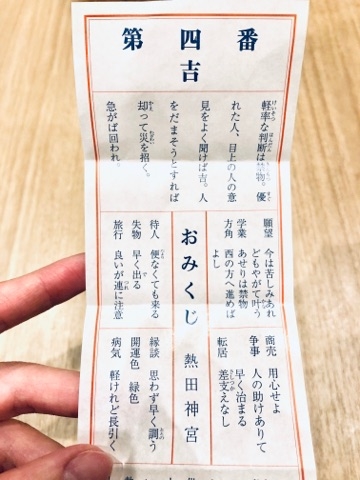 第四番
吉
軽率な判断は禁物。優
れた人、目上の人の意
見をよく聞けば吉。人
をだまそうとすれば
却って災を招く。
急がば回われ。
願望 今は苦しみあれ
どもやがて叶う
学業 あせりは禁物
方角 西の方へ進めば
よし
おみくじ 熱田神宮
待人 便なくても来る
失物 早く出る
旅行 良いが連に注意
商売 用心せよ
争事 人の助けありて
早く治まる
転居 差支えなし
縁談 思わず早く調う
開運色 緑色
病気 軽けれど長引く